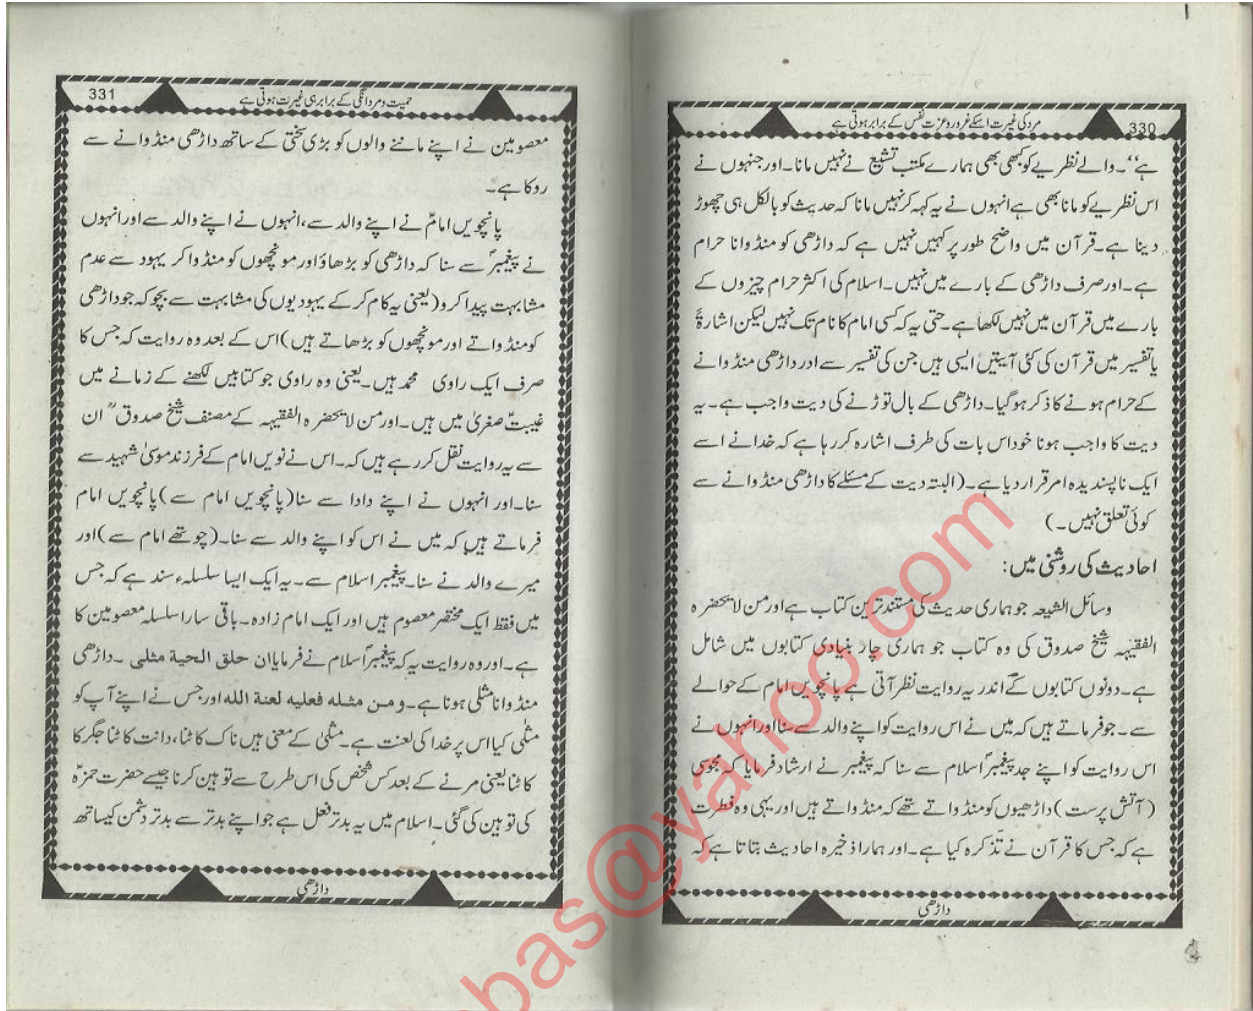 330
مرد کی غیرت اسکے غرور و عزت نفس کے برابر ہوتی ہے
ہے‘‘۔ والے نظریے کو کبھی بھی ہمارے مکتب تشیع نے نہیں مانا۔ اور جنہوں نے
اس نظریے کو مانا بھی ہے انہوں نے یہ کہہ کر نہیں مانا کہ حدیث کو بالکل ہی چھوڑ
دینا ہے۔ قرآن میں واضح طور پر کہیں نہیں ہے کہ داڑھی کو منڈوانا حرام
ہے۔ اور صرف داڑھی کے بارے میں نہیں۔ اسلام کی اکثر حرام چیزوں کے
بارے میں قرآن میں نہیں لکھا ہے۔ حتی یہ کہ کسی امام کا نام تک نہیں لیکن اشارۃً
یا تفسیر میں قرآن کی کئی آیتیں ایسی ہیں جن کی تفسیر سے ادر داڑھی منڈوانے
کے حرام ہونے کا ذکر ہو گیا۔ داڑھی کے بال توڑنے کی دیت واجب ہے۔ یہ
دیت کا واجب ہونا خود اس بات کی طرف اشارہ کر رہا ہے کہ خدا نے اسے
ایک ناپسندیدہ امر قرار دیا ہے۔ (البتہ دیت کے مسئلے کا داڑھی منڈوانے سے
کوئی تعلق نہیں۔)
احادیث کی روشنی میں:
وسائل الشیعہ جو ہماری حدیث کی مستند ترین کتاب ہے اور من لا یحضرہ
الفقیہہ شیخ صدوق کی وہ کتاب جو ہماری چار بنیادی کتابوں میں شامل
ہے۔ دونوں کتابوں کے اندر یہ روایت نظر آتی ہے پانچویں امام کے حوالے
سے۔ جو فرماتے ہیں کہ میں نے اس روایت کو اپنے والد سے سنا اور انہوں نے
اس روایت کو اپنے جد پیغمبرؐ اسلام سے سنا کہ پیغمبر نے ارشاد فرمایا کہ مجوسی
(آتش پرست) داڑھیوں کو منڈواتے تھے کہ منڈواتے ہیں اور یہی وہ فطرت
ہے کہ جس کا قرآن نے تذکرہ کیا ہے۔ اور ہمارا ذخیرہ احادیث بتاتا ہے کہ
داڑھی
331
حمیت و مردانگی کے برابر ہی غیرت ہوتی ہے
معصومین نے اپنے ماننے والوں کو بڑی سختی کے ساتھ داڑھی منڈوانے سے
روکا ہے۔
پانچویں امامؑ نے اپنے والد سے، انہوں نے اپنے والد سے اور انہوں
نے پیغمبرؐ سے سنا کہ داڑھی کو بڑھاؤ اور مونچھوں کو منڈوا کر یہود سے عدم
مشابہت پیدا کرو (یعنی یہ کام کر کے یہودیوں کی مشابہت سے بچو کہ جو داڑھی
کو منڈواتے اور مونچھوں کو بڑھاتے ہیں) اس کے بعد وہ روایت کہ جس کا
صرف ایک راوی محمد ہیں۔ یعنی وہ راوی جو کتابیں لکھنے کے زمانے میں
غیبت صغریٰ میں ہیں۔ اور من لا یحضرہ الفقیہہ کے مصنف شیخ صدوقؒ ان
سے یہ روایت نقل کر رہے ہیں کہ۔ اس نے نویں امام کے فرزند موسیٰ شہید سے
سنا۔ اور انہوں نے اپنے دادا سے سنا (پانچویں امام سے) پانچویں امام
فرماتے ہیں کہ میں نے اس کو اپنے والد سے سنا۔ (چوتھے امام سے) اور
میرے والد نے سنا۔ پیغمبر اسلام سے۔ یہ ایک ایسا سلسلہء سند ہے کہ جس
میں فقط ایک مختصر معصوم ہیں اور ایک امام زادہ۔ باقی سارا سلسلہ معصومین کا
ہے۔ اور وہ روایت یہ کہ پیغمبرؐ اسلام نے فرمایا ان حلق الحية مثلى۔ داڑھی
منڈوانا مثلی ہونا ہے۔ و من مثله فعليه لعنة الله اور جس نے اپنے آپ کو
مثلٰی کیا اس پر خدا کی لعنت ہے۔ مثلیٰ کے معنی ہیں ناک کاٹنا، دانت کاٹنا جگر کا
کاٹنا یعنی مرنے کے بعد کس شخص کی اس طرح سے توہین کرنا جیسے حضرت حمزہؑ
کی توہین کی گئی۔ اسلام میں یہ بدتر فعل ہے جو اپنے بدتر سے بدتر دشمن کیساتھ
داڑھی
bas@yahoo.com